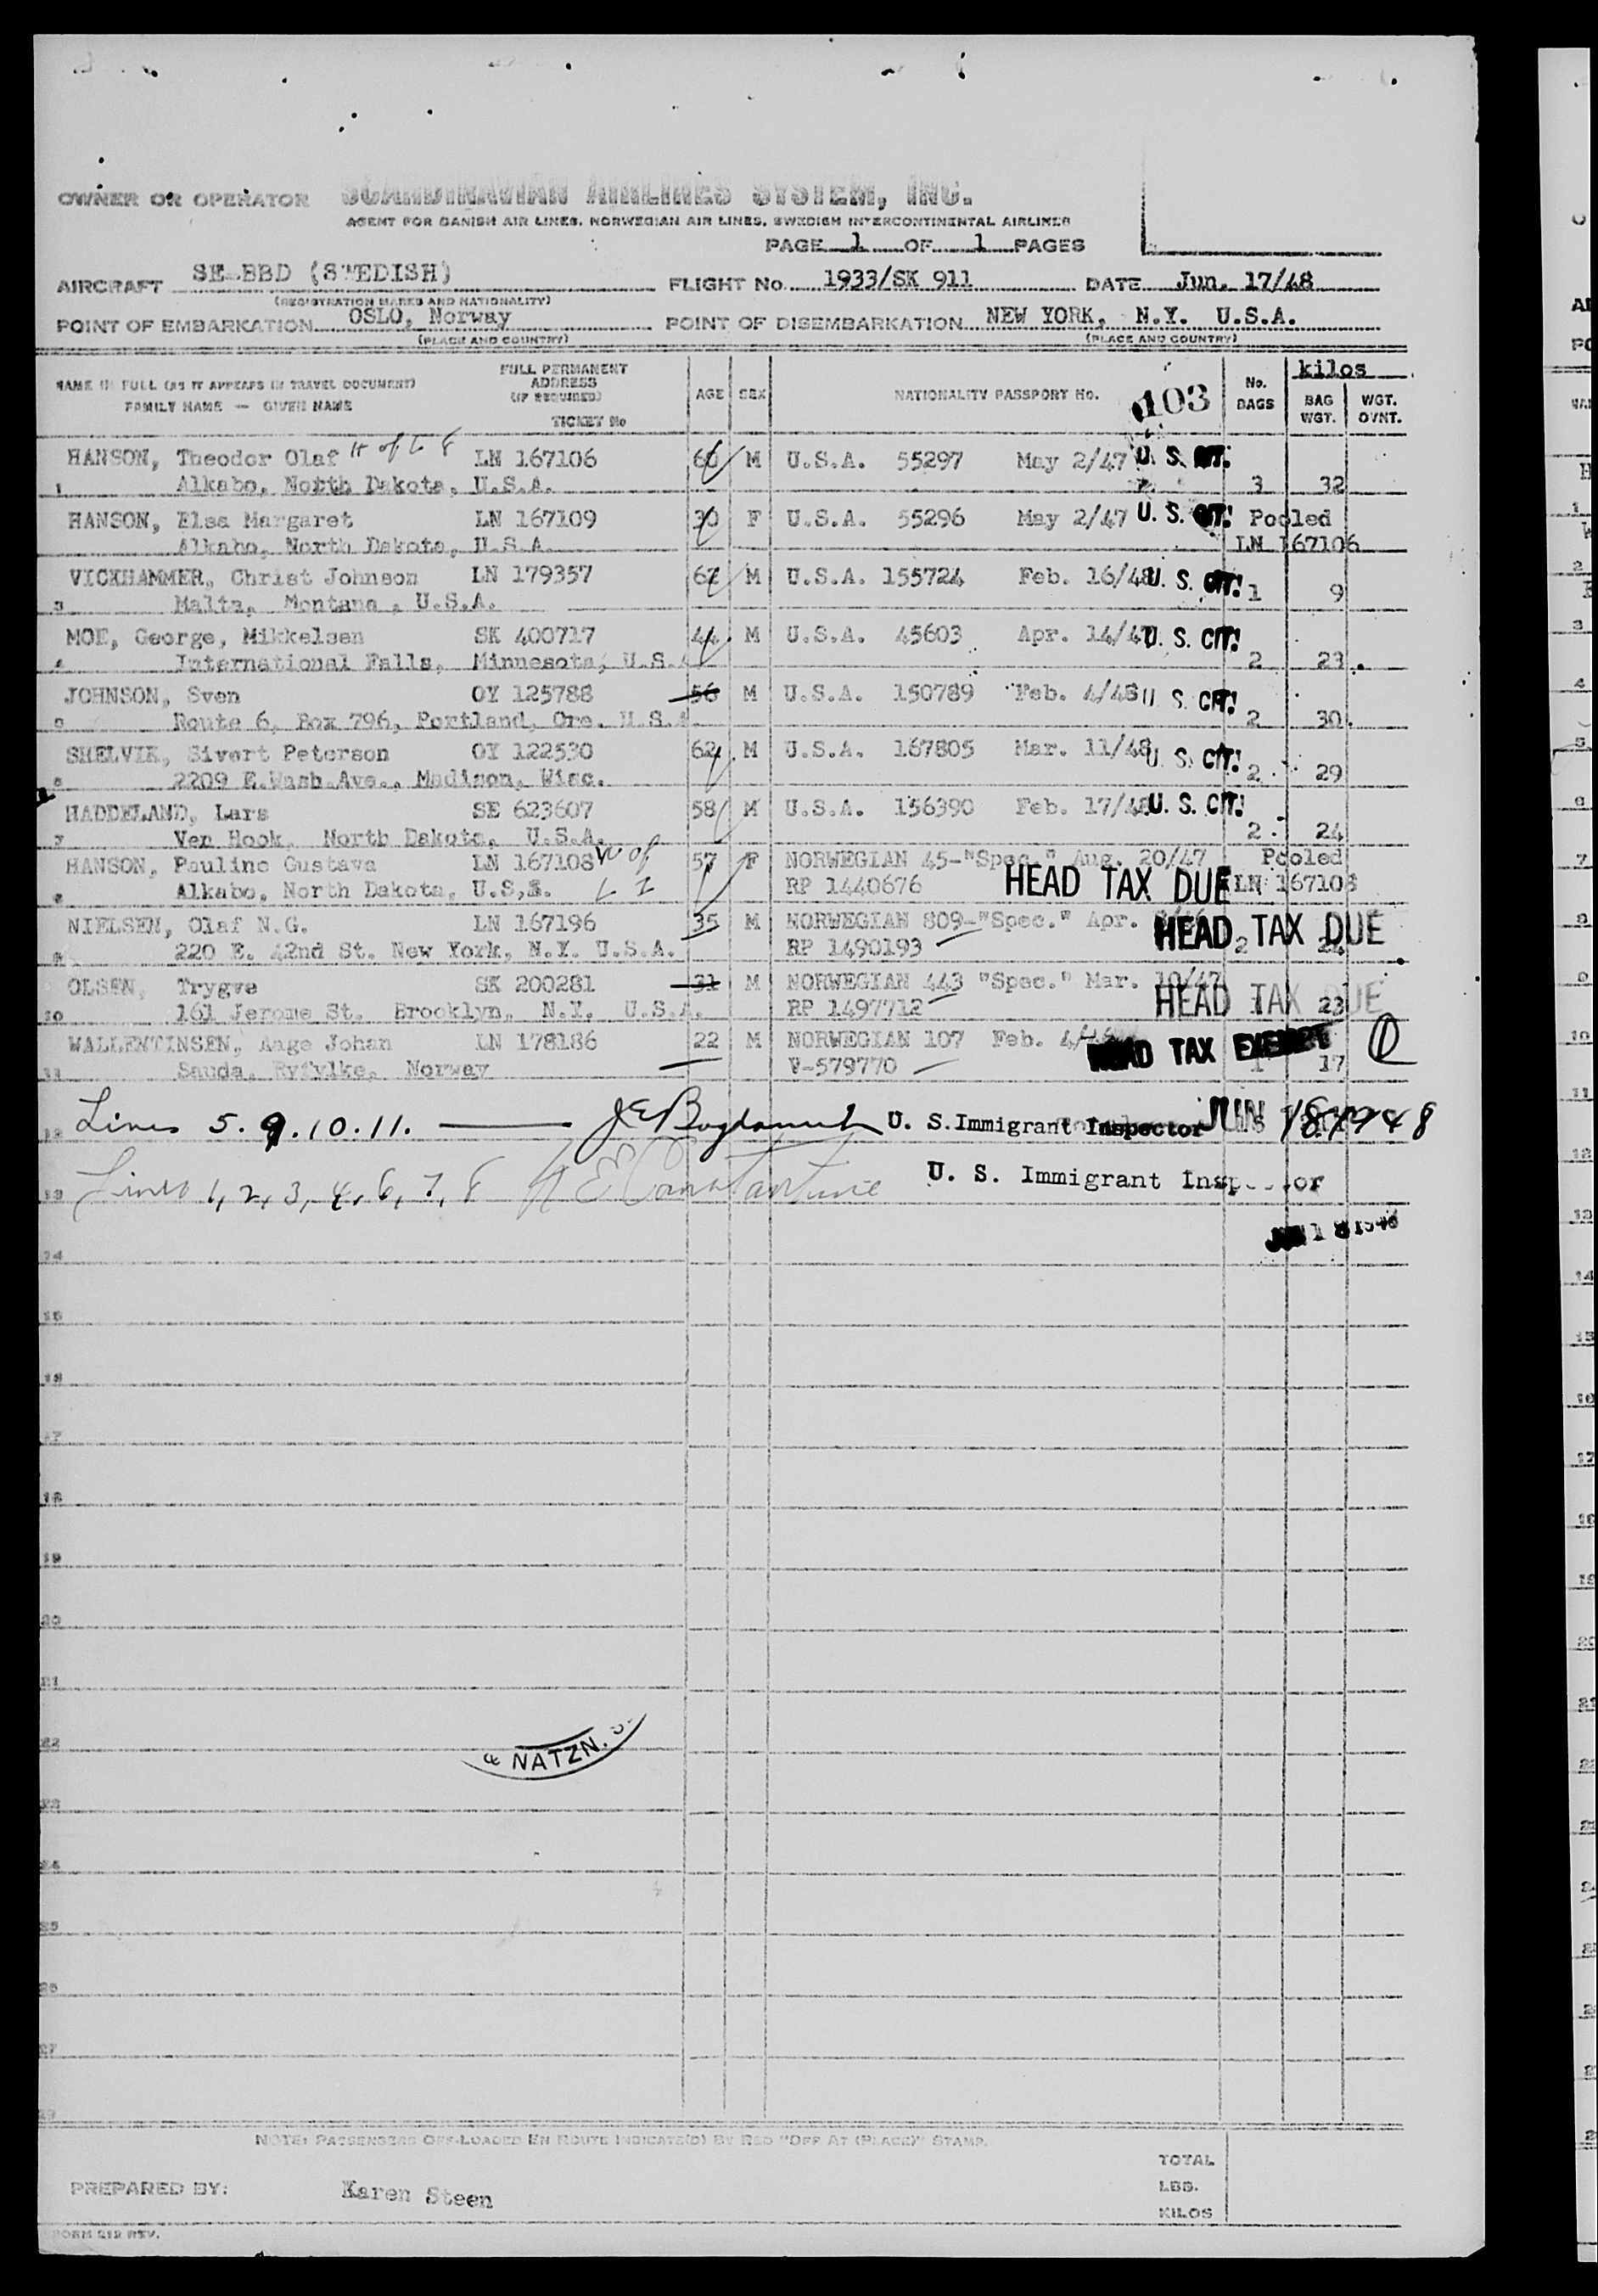 OWNER OR OPERATOR SCANDINAVIAN AIRLINES SYSTEM, INC.
AGENT FOR DANISH AIR LINES, NORWEGIAN AIR LINES, SWEDISH INTERCONTINENTAL AIRLINES
PAGE 1 OF 1 PAGES
AIRCRAFT SE-BBD (SWEDISH) FLIGHT No. 1933/SK 911 DATE Jun. 17/48
(REGISTRATION MARKS AND NATIONALITY)
POINT OF EMBARKATION OSLO, Norway POINT OF DISEMBARKATION NEW YORK, N.Y. U.S.A.
(PLACE AND COUNTRY) (PLACE AND COUNTRY)
NAME IN FULL (AS IT APPEARS IN TRAVEL DOCUMENT)
FAMILY NAME — GIVEN NAME
FULL PERMANENT
ADDRESS
(IF REQUIRED)
TICKET No
AGE SEX NATIONALITY PASSPORT No. 103
No.
BAGS
kilos
BAG
WGT.
WGT.
OVNT.
HANSON, Theodor Olaf H of L 8 LN 167106 60 M U.S.A. 55297 May 2/47 U. S. CIT.
1 Alkabo, North Dakota, U.S.A. 3 32
HANSON, Elsa Margaret LN 167109 30 F U.S.A. 55296 May 2/47 U. S. CIT! Pooled
Alkabo, North Dakota, U.S.A. LN 167106
VICKHAMMER, Christ Johnson LN 179357 67 M U.S.A. 155724 Feb. 16/48 U. S. CIT! 1 9
3 Malta, Montana, U.S.A.
MOE, George, Mikkelsen SK 400717 44 M U.S.A. 45603 Apr. 14/47 U. S. CIT!
4 International Falls, Minnesota, U.S.A 2 23.
JOHNSON, Sven OY 125788 56 M U.S.A. 150789 Feb. 4/48 U. S. CIT!
5 Route 6, Box 796, Portland, Ore. U.S.A. 2 30.
SHELVIK, Sivert Peterson OY 122530 62 M U.S.A. 167805 Mar. 11/48 U. S. CIT!
6 2209 E.Wash.Ave., Madison, Wisc. 2 29
HADDELAND, Lars SE 623607 58 M U.S.A. 156390 Feb. 17/48 U. S. CIT!
7 Ven Hook, North Dakota, U.S.A. 2 24
HANSON, Pauline Gustava LN 167108 W of 57 F NORWEGIAN 45-"Spec." Aug. 20/47 Pooled
8 Alkabo, North Dakota, U.S,A. L 1 RP 1440676 HEAD TAX DUE LN 167108
NIELSEN, Olaf N.G. LN 167196 35 M NORWEGIAN 809-"Spec." Apr. HEAD TAX DUE
9 220 E. 42nd St. New York, N.Y. U.S.A. RP 1490193 2
OLSEN, Trygve SK 200281 31 M NORWEGIAN 443 "Spec." Mar. 10/47
10 161 Jerome St. Brooklyn, N.Y. U.S.A. RP 1497712 HEAD TAX DUE 23
WALLENTINSEN, Aage Johan LN 178186 22 M NORWEGIAN 107 Feb. HEAD TAX EXEMPT
11 Sauda, Ryfylke, Norway V-579770 1 17
12 Lines 5. 9. 10. 11. U. S. Immigrant Inspector JUN 18 1948
13 Lines 1, 2, 3, 4, 6, 7, 8 U. S. Immigrant Inspector
JUN 18 1948
14
15
16
17
18
19
20
21
22
& NATZN. S
23
24
25
26
27
28
NOTE: PASSENGERS OFF-LOADED EN ROUTE INDICATE(D) BY RED "OFF AT (PLACE)" STAMP.
PREPARED BY: Karen Steen
TOTAL
LBS.
KILOS
FORM 212 REV.